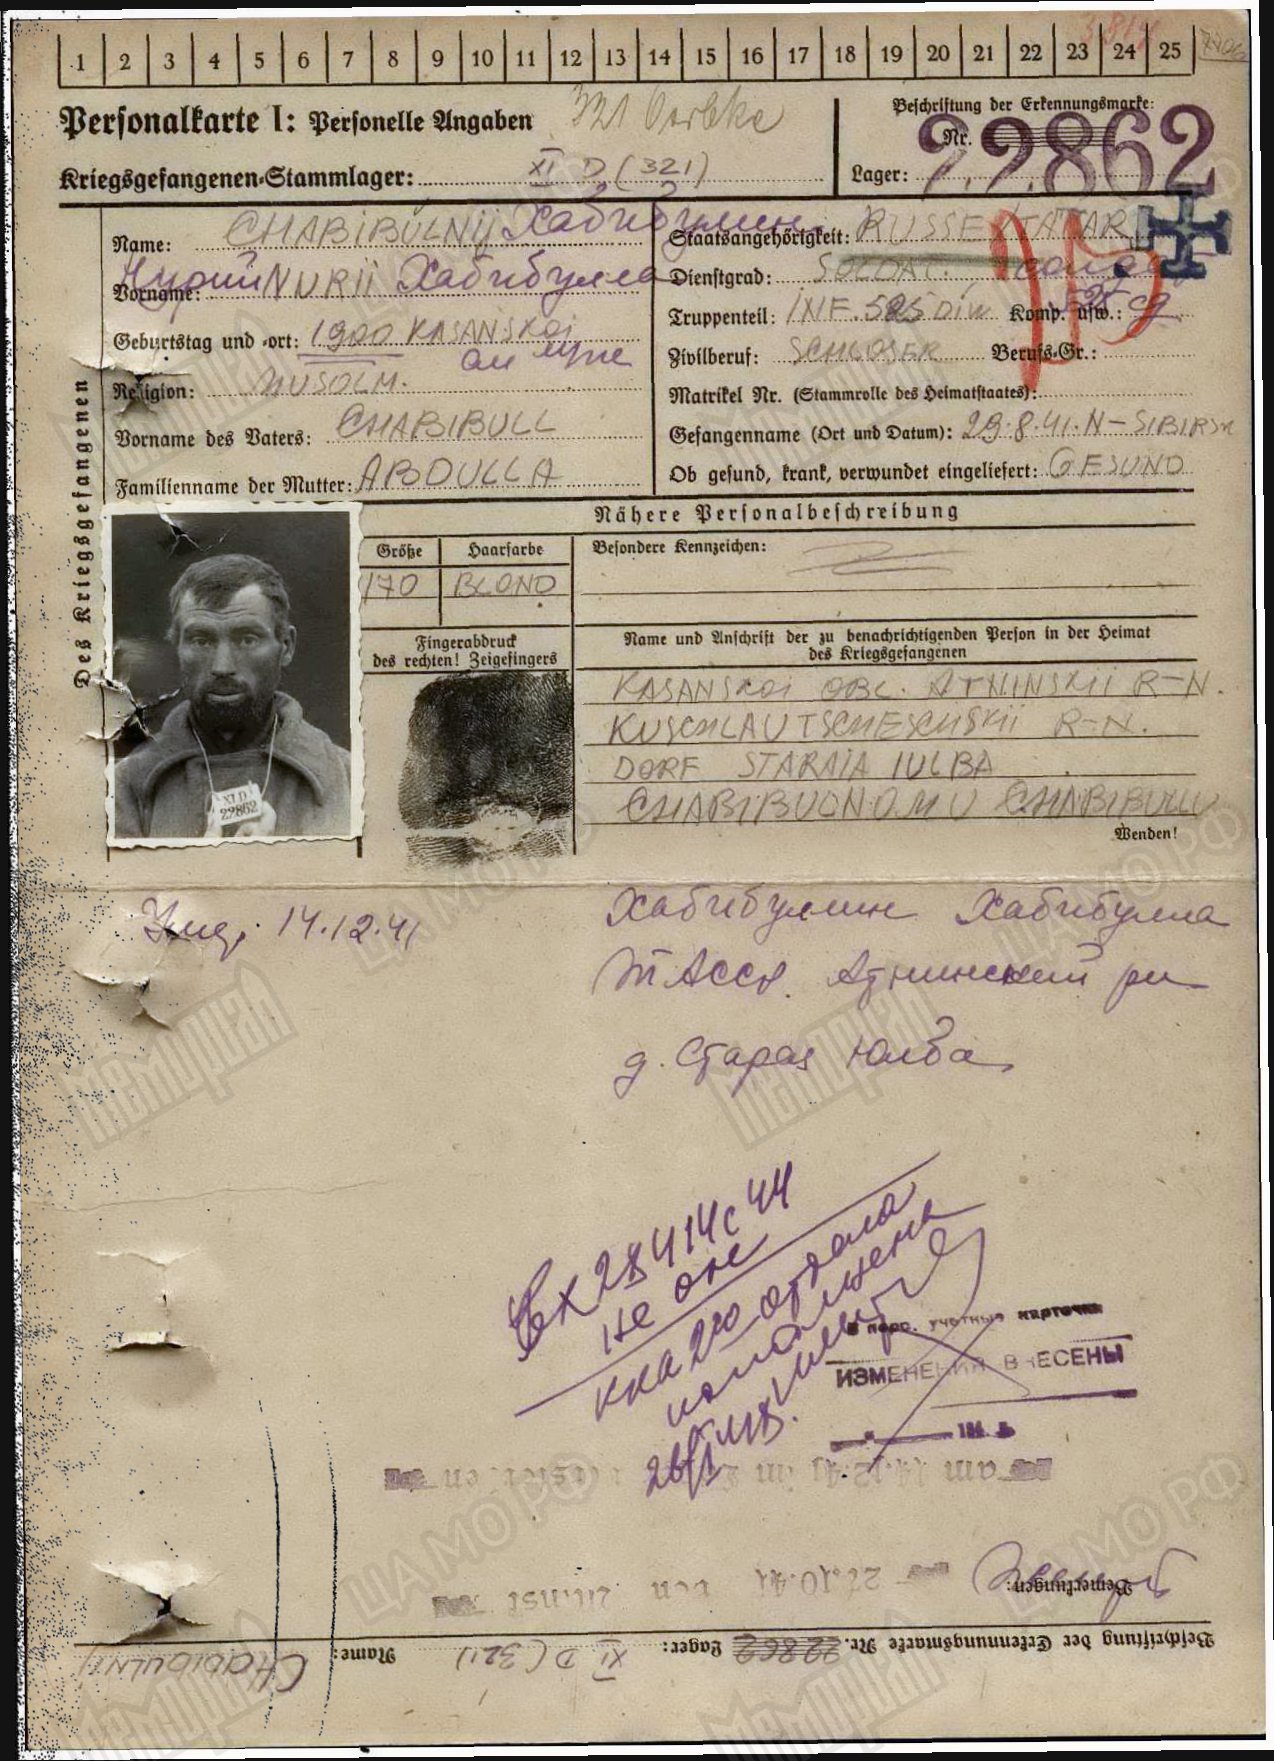 1 2 3 4 5 6 7 8 9 10 11 12 13 14 15 16 17 18 19 20 21 22 23 24 25
Personalkarte I: Personelle Angaben
321 Oerbke
Beschriftung der Erkennungsmarke:
Nr. 22862
Kriegsgefangenen-Stammlager: XI D (321)
Lager:
Des Kriegsgefangenen
Name: CHABIBULNIJ Хабибулин
Vorname: Нурий NURII Хабибулла
Geburtstag und -ort: 1900 KASANSKOI
Religion: MUSOLM.
Vorname des Vaters: CHABIBULL
Familienname der Mutter: ABDULLA
Staatsangehörigkeit: RUSSE TATAR
Dienstgrad: SOLDAT. солдат
Truppenteil: INF. 525 Div Komp. usw.: 525 сд
Zivilberuf: SCHLOSER Berufs-Gr.:
Matrikel Nr. (Stammrolle des Heimatstaates):
Gefangenname (Ort und Datum): 29.8.41. N-SIBIRSK
Ob gesund, krank, verwundet eingeliefert: GESUND
Nähere Personalbeschreibung
Größe Haarfarbe Besondere Kennzeichen:
170 BLOND
Fingerabdruck
des rechten! Zeigefingers
Name und Anschrift der zu benachrichtigenden Person in der Heimat
des Kriegsgefangenen
KASANSKOI OBL. ATNINSKII R-N.
KUSCHLAUTSCHESCHSKII R-N.
DORF STARAIA IULBA
CHABIBULNOMU CHABIBULLU
Wenden!
XI D
22862
14.12.41
Хабибуллин Хабибулла
ТАССР. Атнинский рн
д. Старая Юлба
Вх 28414с 44
не оп
кка 2го отдела
В перс. учетные карточки
ИЗМЕНЕНИЯ ВНЕСЕНЫ
194 г.
am 14.12.41 in
27.10.41
Bemerkungen:
Beschriftung der Erkennungsmarke Nr. 22862 Lager: XI D (321) Name: CHABIBULNIJ
Мемориал
ЦАМО РФ